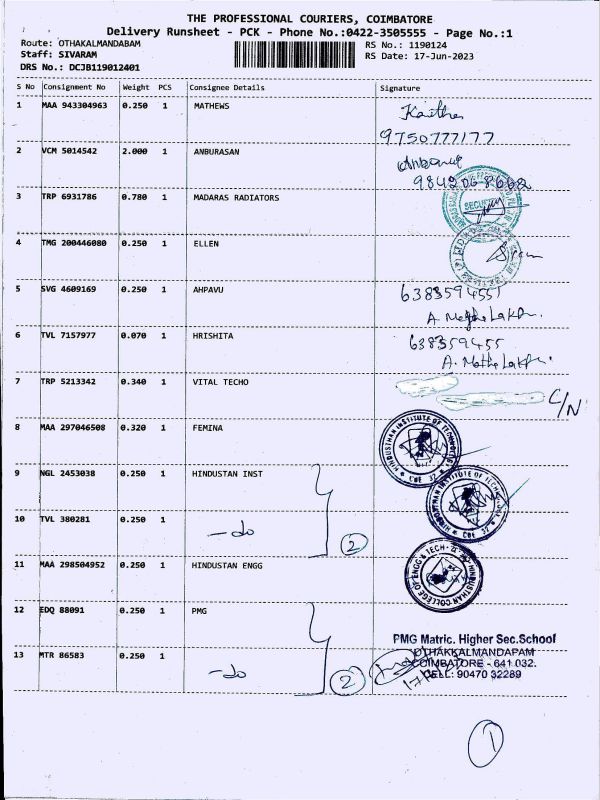 THE PROFESSIONAL COURIERS, COIMBATORE
Delivery Runsheet - PCK - Phone No.:0422-3505555 - Page No.:1
Route: OTHAKALMANDABAM
RS No.: 1190124
Staff: SIVARAM
RS Date: 17-Jun-2023
DRS No.: DCJB119012401
S No Consignment No Weight PCS Consignee Details Signature
1 MAA 943304963 0.250 1 MATHEWS
9750777177
2 VCM 5014542 2.000 1 ANBURASAN
9842068668
3 TRP 6931786 0.780 1 MADARAS RADIATORS
SECURITY
4 TMG 200446080 0.250 1 ELLEN
5 SVG 4609169 0.250 1 AHPAVU
6383594551
6 TVL 7157977 0.070 1 HRISHITA
638359455
7 TRP 5213342 0.340 1 VITAL TECHO
C/N
8 MAA 297046508 0.320 1 FEMINA
HINDUSTHAN INSTITUTE OF TECHNOLOGY
CBE 32
9 NGL 2453038 0.250 1 HINDUSTAN INST
HINDUSTHAN INSTITUTE OF TECHNOLOGY
CBE 32
10 TVL 380281 0.250 1 -do 2
11 MAA 298504952 0.250 1 HINDUSTAN ENGG
HINDUSTHAN COLLEGE OF ENGG & TECH
12 EDQ 88091 0.250 1 PMG
PMG Matric. Higher Sec.School
13 MTR 86583 0.250 1 -do 2
OTHAKKALMANDAPAM
COIMBATORE - 641 032.
CELL: 90470 32289
1